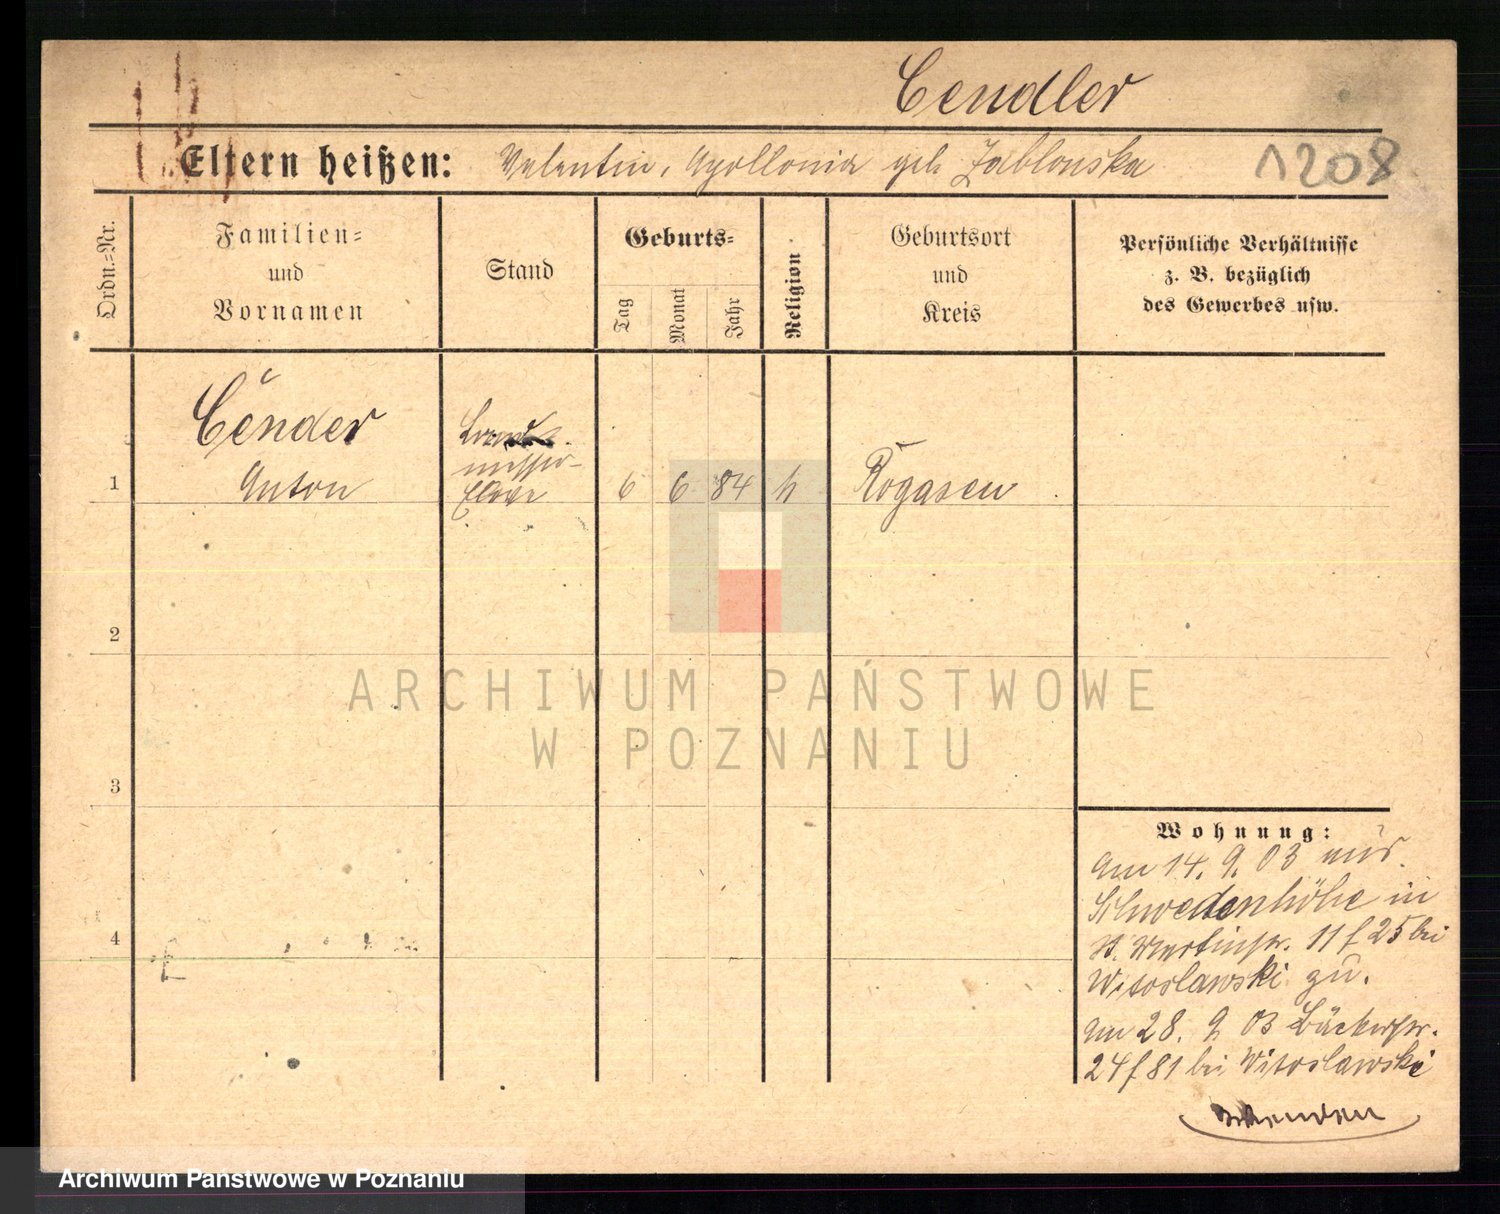 Cendler
Eltern heißen: Valentin, Apollonia geb Jablonska 1208
Ordn.=Nr.
Familien=
und
Vornamen
Stand
Geburts=
Tag
Monat
Jahr
Religion
Geburtsort
und
Kreis
Persönliche Verhältnisse
z. B. bezüglich
des Gewerbes usw.
Cender
1 Anton 6 6 84 k Rogasen
2
ARCHIWUM PAŃSTWOWE
W POZNANIU
3
Wohnung:
Am 14. 9. 03 aus
Schwedenhöhe in
St. Martinstr. 11 f 25 bei
Witoslawski zu.
Am 28. 9 03 Bäckerstr.
24 f 81 bei Witoslawski
4
Archiwum Państwowe w Poznaniu